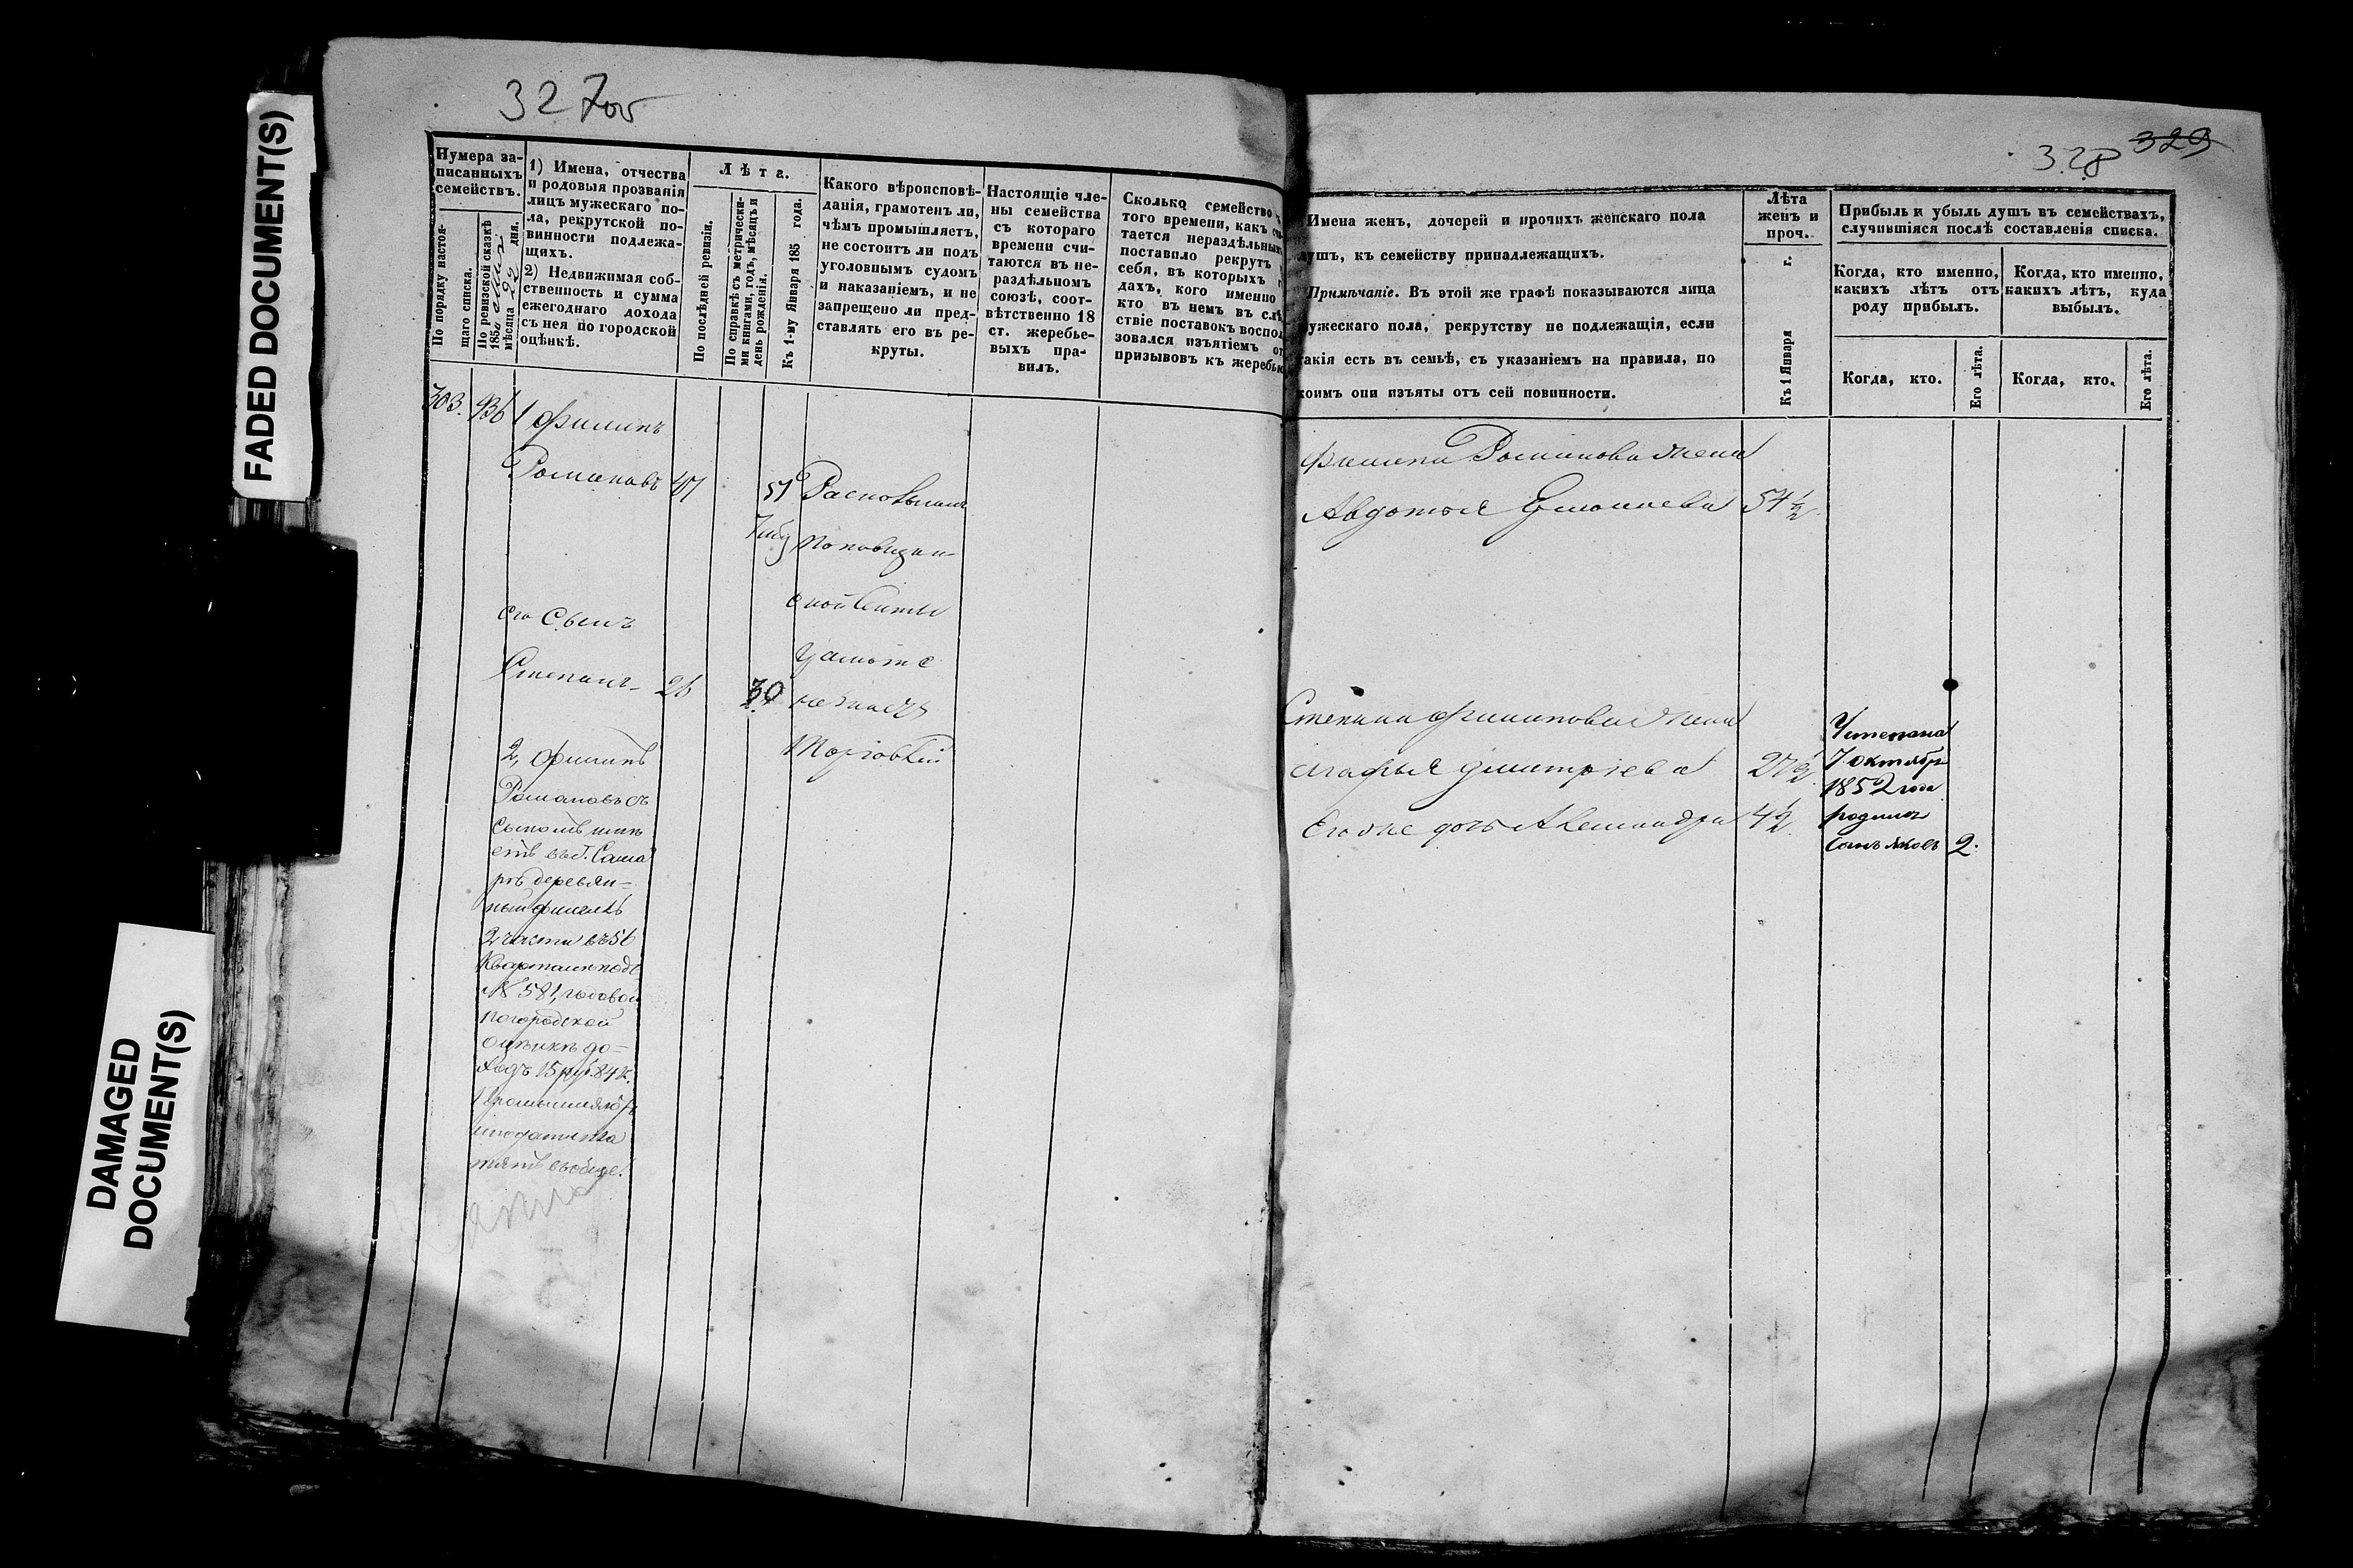 FADED DOCUMENT(S)
DAMAGED
DOCUMENT(S)
327об
Нумера за-
писанныхъ
семействъ.
По порядку настоя-
щаго списка.
По ревизской сказкѣ
185
мѣсяца 22 дня.
1) Имена, отчества
и родовыя прозванія
лицъ мужескаго по-
ла, рекрутской по-
винности подлежа-
щихъ.
2) Недвижимая соб-
ственность и сумма
ежегоднаго дохода
съ нея по городской
оцѣнкѣ.
Лѣта.
По послѣдней ревизіи.
По справкѣ съ метрически-
ми книгами, годъ, мѣсяцъ и
день рожденія.
Къ 1-му Января 185 года.
Какого вѣроисповѣ-
данія, грамотенъ ли,
чѣмъ промышляетъ,
не состоитъ ли подъ
уголовнымъ судомъ
и наказаніемъ, и не
запрещено ли пред-
ставлять его въ ре-
круты.
Настоящіе чле-
ны семейства
съ котораго
времени счи-
таются въ не-
раздѣльном
союзѣ, соот-
вѣтственно 18
ст. жеребье-
выхъ пра-
вилъ.
Сколько семейство
того времени, какъ
тается нераздѣльнымъ
поставило рекрутъ
себя, въ которыхъ
дахъ, кого именно
кто въ немъ въ слѣ
ствіе поставокъ воспол
зовался изъятіемъ от
призывовъ къ жеребью
303. 936
1 Филипъ
Романовъ 47
51 Раскольникъ
Поповщин-
ской секты
грамотѣ
не знаетъ
Торговлей
его Сынъ
Степанъ 26
30
2, Филипъ
Романовъ съ
сыномъ имѣ
етъ въ г. Сама
рѣ деревян-
ный флигель
2 части въ 56
Кварталѣ подъ
№ 581, годовой
по городской
оцѣнкѣ до-
ходъ 15 руб. 84 к.
вообще.
328 329
Имена женъ, дочерей и прочихъ женскаго пола
душъ, къ семейству принадлежащихъ.
Примѣчаніе. Въ этой же графѣ показываются лица
мужескаго пола, рекрутству не подлежащія, если
такія есть въ семьѣ, съ указаніемъ на правила, по
коимъ они изъяты отъ сей повинности.
Лѣта
женъ и
проч.
Къ 1 Января г.
Прибыль и убыль душъ въ семействахъ,
случившіяся послѣ составленія списка.
Когда, кто именно,
какихъ лѣтъ отъ
роду прибылъ.
Когда, кто именно,
какихъ лѣтъ, куда
выбылъ.
Когда, кто.
Его лѣта.
Когда, кто.
Его лѣта.
Филипа Романова жена
Авдотья Ермолаева 54 1/2
Степана Филипова жена
Марья Дмитріева 27 1/2
Его же дочь Александра 4 1/2
У Степана
7 октября
1852 года
родился
сынъ Яковъ 2.